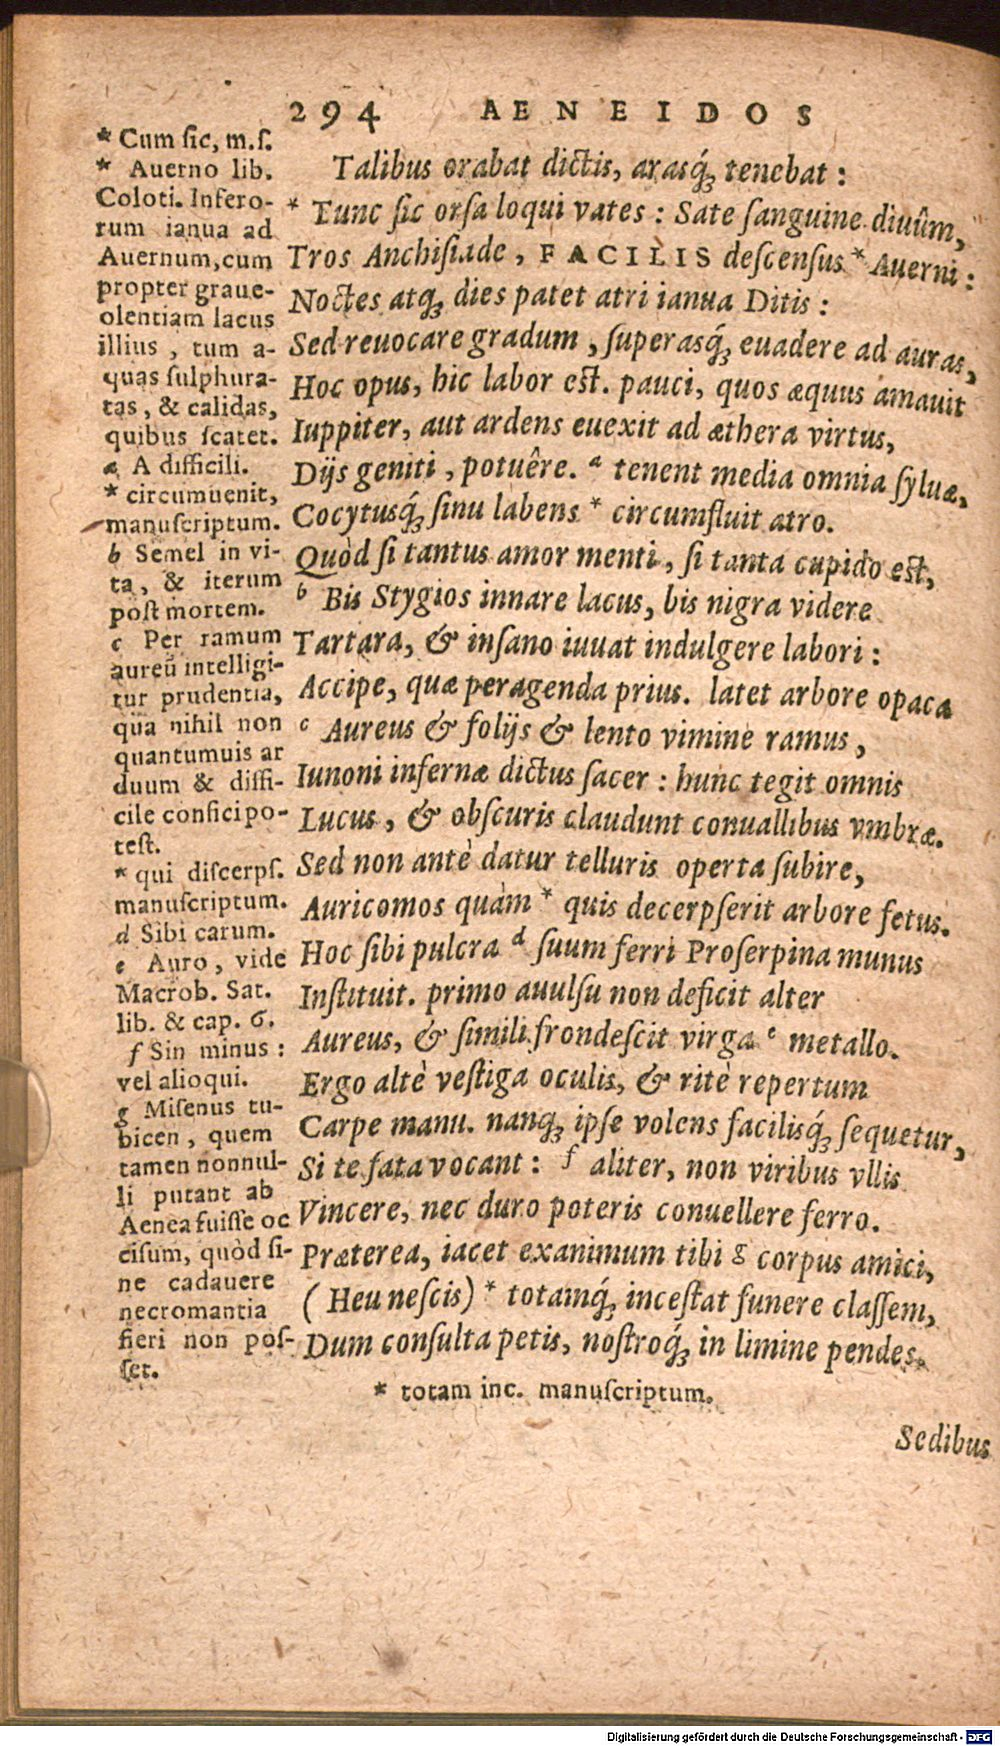 294 AENEIDOS
* Cum ſic, m.ſ.
* Auerno lib.
Coloti. Infero-
rum ianua ad
Auernum, cum
propter graue-
olentiam lacus
illius, tum a-
quas ſulphura-
tas, & calidas,
quibus ſcatet.
a A difficili.
* circumuenit,
manuſcriptum.
b Semel in vi-
ta, & iterum
poſt mortem.
c Per ramum
aureū intelligi-
tur prudentia,
qua nihil non
quantumuis ar
duum & diffi-
cile confici po-
teſt.
* qui diſcerpſ.
manuſcriptum.
d Sibi carum.
e Auro, vide
Macrob. Sat.
lib. & cap. 6.
f Sin minus:
vel alioqui.
g Miſenus tu-
bicen, quem
tamen nonnul-
li putant ab
Aenea fuiſſe oc
ciſum, quòd ſi-
ne cadauere
necromantia
fieri non poſ-
ſet.
Talibus orabat dictis, arasq́ꝫ tenebat:
* Tunc ſic orſa loqui vates: Sate ſanguine diuûm,
Tros Anchiſiade, FACILIS deſcenſus * Auerni:
Noctes atqꝫ dies patet atri ianua Ditis:
Sed reuocare gradum, ſuperasq́ꝫ euadere ad auras,
Hoc opus, hic labor eſt. pauci, quos æquus amauit
Iuppiter, aut ardens euexit ad æthera virtus,
Dijs geniti, potuêre. a tenent media omnia ſyluæ,
Cocytusq́ꝫ ſinu labens * circumfluit atro.
Quòd ſi tantus amor menti, ſi tanta cupido eſt,
b Bis Stygios innare lacus, bis nigra videre
Tartara, & inſano iuuat indulgere labori:
Accipe, quæ peragenda prius. latet arbore opaca
c Aureus & folijs & lento vimine ramus,
Iunoni infernæ dictus ſacer: hunc tegit omnis
Lucus, & obſcuris claudunt conuallibus vmbræ.
Sed non antè datur telluris operta ſubire,
Auricomos quàm * quis decerpſerit arbore fetus.
Hoc ſibi pulcra d ſuum ferri Proſerpina munus
Inſtituit. primo auulſu non deficit alter
Aureus, & ſimili frondeſcit virga e metallo.
Ergo altè veſtiga oculis, & ritè repertum
Carpe manu. nanqꝫ ipſe volens facilisq́ꝫ ſequetur,
Si te fata vocant: f aliter, non viribus vllis
Vincere, nec duro poteris conuellere ferro.
Præterea, iacet exanimum tibi g corpus amici,
(Heu neſcis) * totamq́ꝫ inceſtat funere claſſem,
Dum conſulta petis, noſtroq́ꝫ in limine pendes.
* totam inc. manuſcriptum.
Sedibus
Digitalisierung gefördert durch die Deutsche Forschungsgemeinschaft - DFG